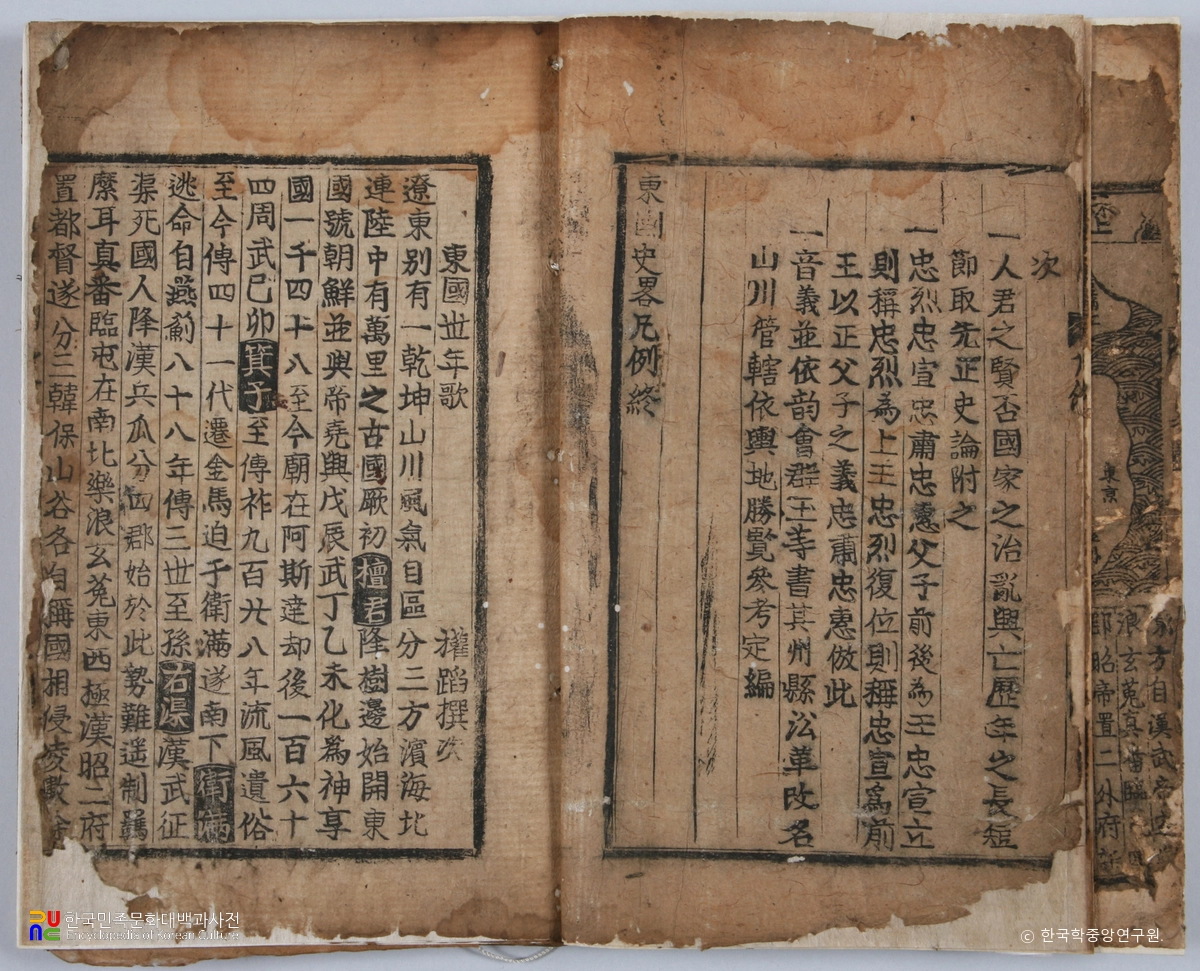 次
一人君之賢否國家之治亂興亡歷年之長短
節取先正史論附之
一忠烈忠宣忠肅忠惠父子前後為王忠宣立
則稱忠烈為上王忠烈復位則稱忠宣爲前
王以正父子之義忠肅忠惠倣此
一音義並依韵會群玉等書其州縣沿革改名
山川管轄依輿地勝覧參考定編
東國史畧凡例終
東國丗年歌
權蹈撰
遼東别有一乾坤山川風氣自區分三方濱海北
連陸中有萬里之古國厥初檀君降樹邊始開東
國號朝鮮並與帝堯興戊辰武丁乙未化為神享
國一千四十八至今廟在阿斯達却後一百六十
四周武己卯箕子至傳祚九百廾八年流風遺俗
至今傳四十一代遷金馬迫于衛滿遂南下衛滿
逃命自燕薊八十八年傳三丗至孫右渠漢武征
渠死國人降漢兵瓜分四郡始於此勢難遥制羈
縻耳真番臨屯在南北樂浪玄菟東西極漢昭二府
置都督遂分三韓保山谷各自稱國相侵凌數
東京
方自漢武帝
浪玄菟真番臨
郡昭帝置二外府
한국민족문화대백과사전
Encyclopedia of Korean Culture
ⓒ 한국학중앙연구원.